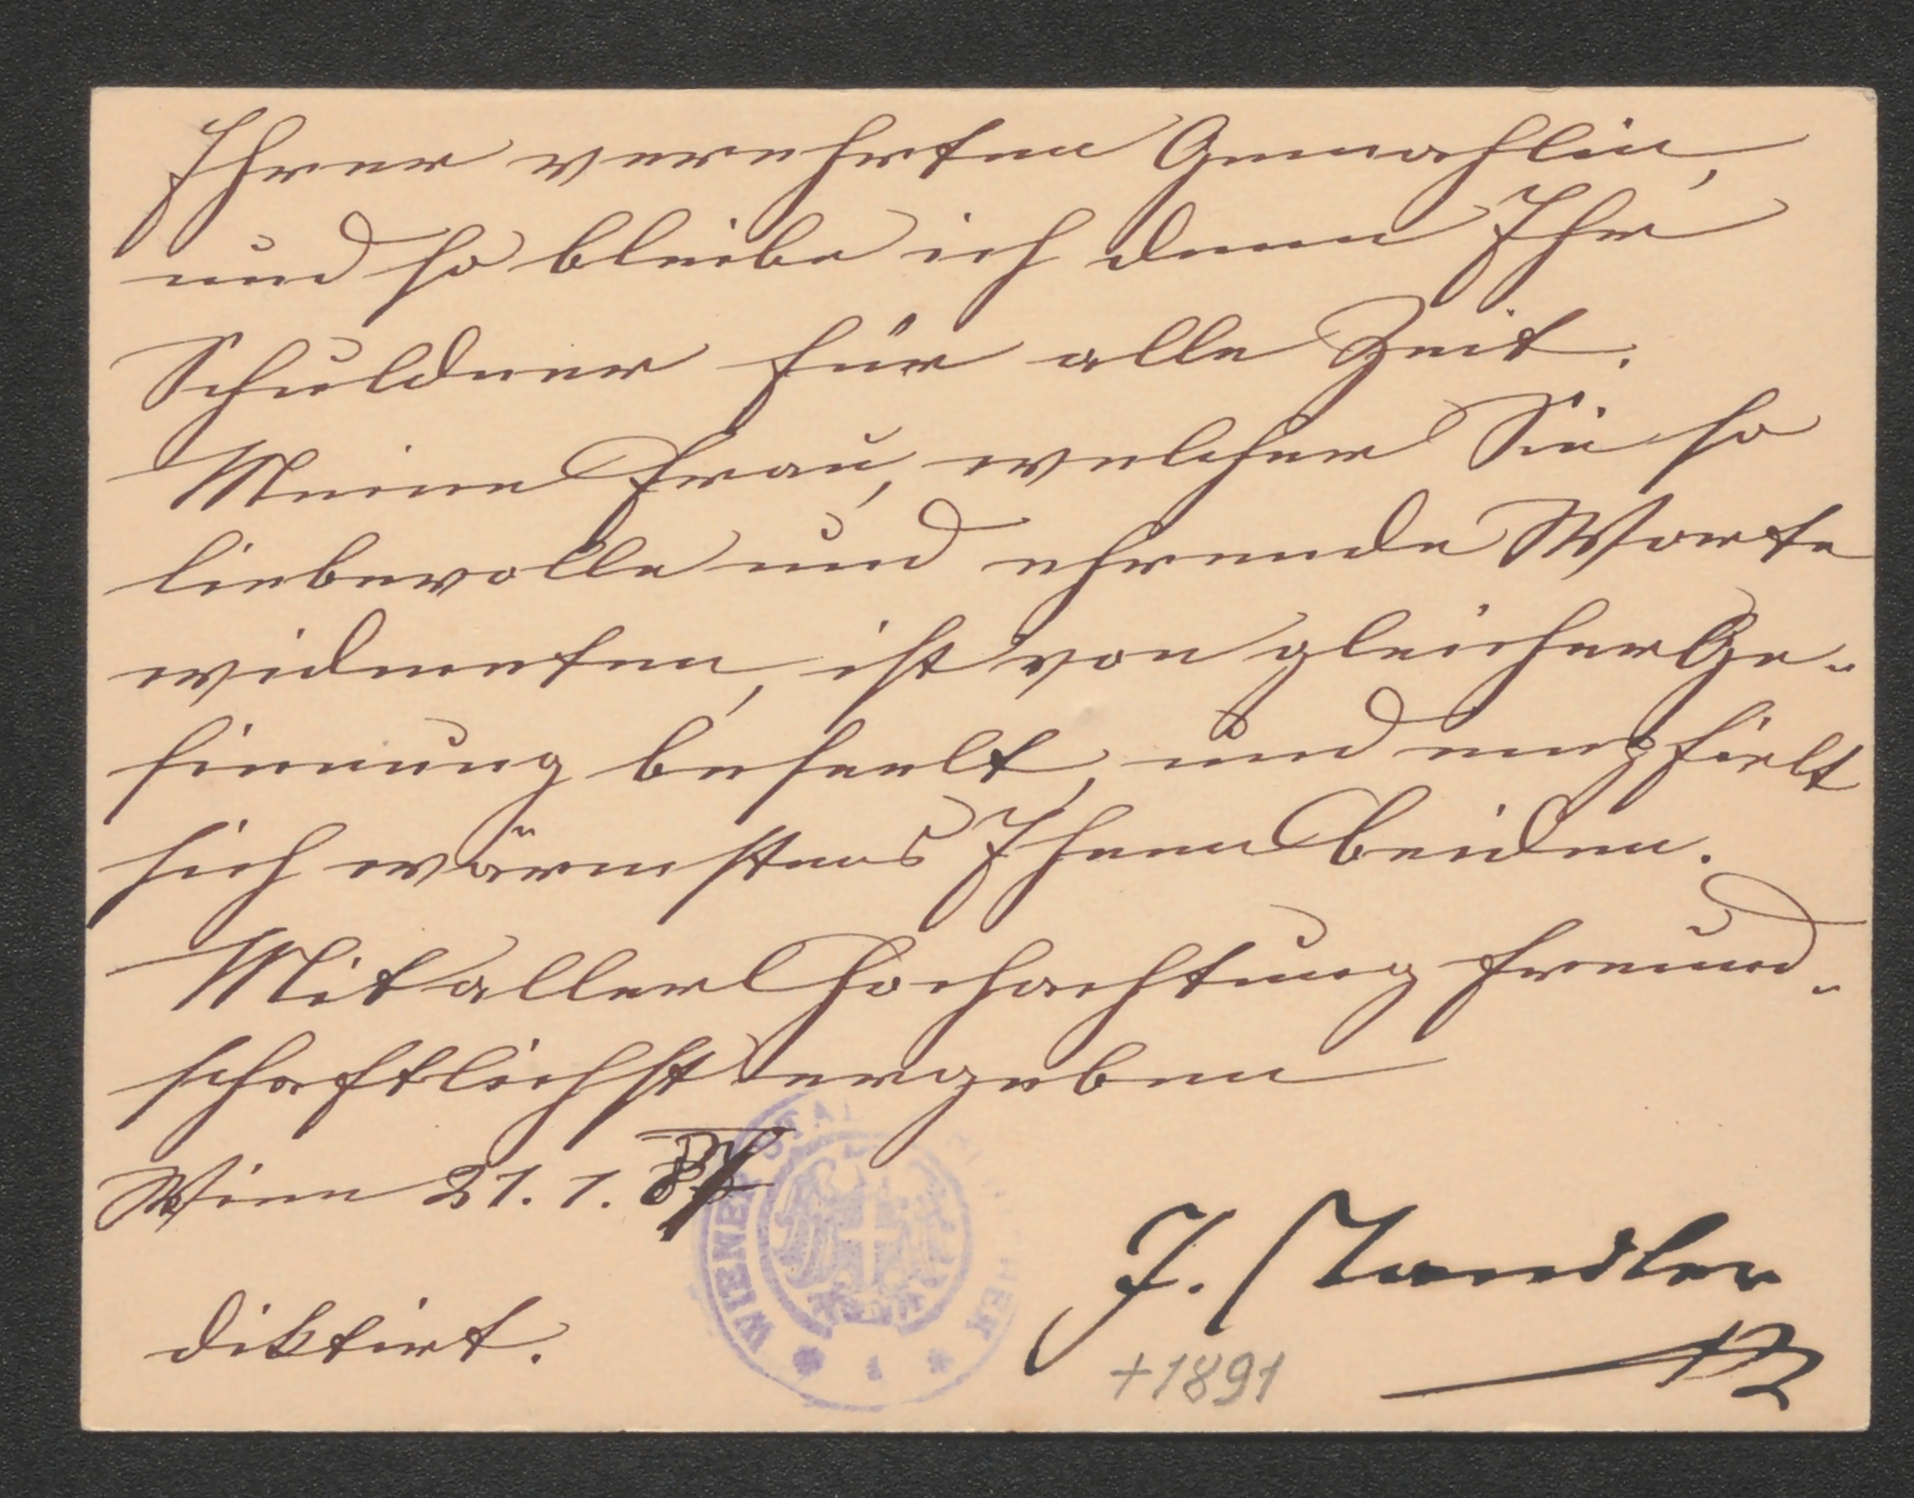 Ihrer verehrten Gemahlin,
und so bleibe ich denn Ihr
Schuldner für alle Zeit.
Meine Frau, welcher Sie so
liebevolle und ehrende Worte
widmeten, ist von gleicher Ge-
sinnung beseelt, und empfielt
sich wärmstens Ihnen beiden.
Mit aller Hochachtung freund-
schaftlichst ergeben
Wien 21. 1. 87
diktirt.
J.
+1891
WIENER